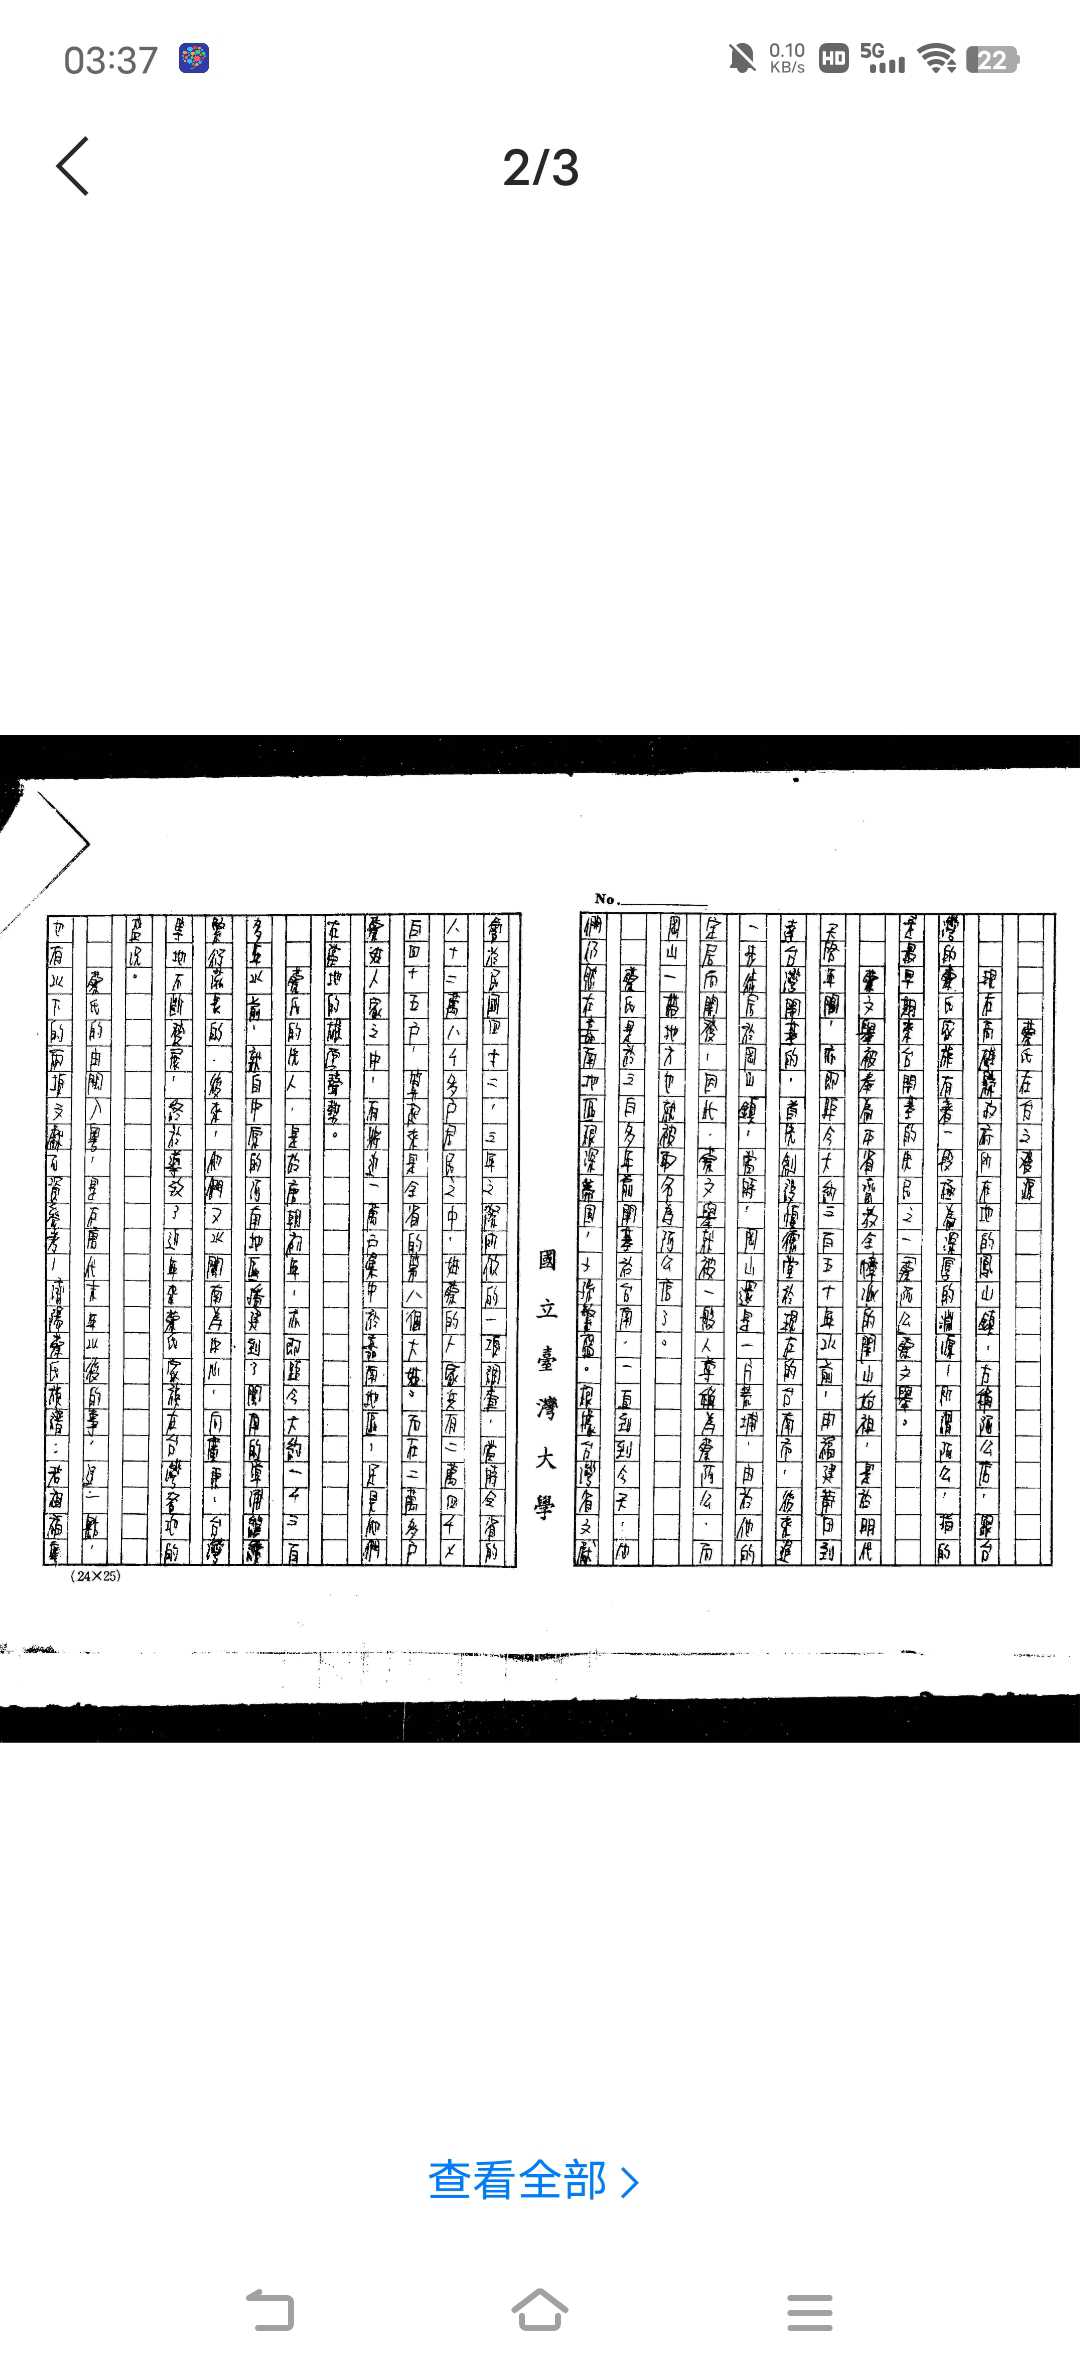 03:37
0.10
KB/s
HD
5G
22
2/3
No.
蔡氏在台之發源
現在高雄縣政府所在地的鳳山鎮，古稱阿公店，跟台
灣的蔡氏家族有着一段極為深厚的淵源，所謂阿公，指的
是最早期來台開基的先民之一蔡阿公蔡文舉。
蔡文舉被奉為本省齋教金幢派的開山始祖，是於明代
天啓年間，亦即距今大約三百五十年以前，由福建莆田到
達台灣開基的，首先創設慎德堂於現在的台南市，後來進
一步結居於岡山鎮，當時，岡山還是一片荒埔，由於他的
定居而開發，因此，蔡文舉就被一般人尊稱為蔡阿公，而
岡山一帶地方也就被取名為阿公店了。
蔡氏是於三百多年前開基於台南，一直到今天，他
們仍然在嘉南地區根深蒂固，十張聲盛。根據台灣省文獻
國立臺灣大學
會於民國四十二，三年之際所做的一項調查，當時全省的
八十二萬八千多户居民之中，姓蔡的人家共有二萬四千七
百四十五户，算起來是全省的第八個大姓。而在二萬多户
蔡姓人家之中，有將近一萬户集中於嘉南地區，足見他們
在當地的雄厚聲勢。
蔡氏的先人，是於唐朝初年，亦即距今大約一千三百
多年以前，就自中原的河南地區播遷到了閩南的漳浦
繁衍滋長的，後來，他們又以閩南為中心，向廣東，台灣
等地不斷發展，終於導致了近年來蔡氏家族在台灣各地的
盛況。
蔡氏的由閩入粵，是在唐代末年以後的事，這一點，
也有以下的兩項文獻可資參考，濟陽蔡氏族譜：若祖福
(24×25)
查看全部